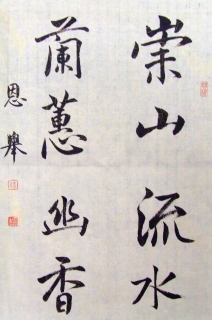 崇山流水
蘭蕙幽香
恩舉